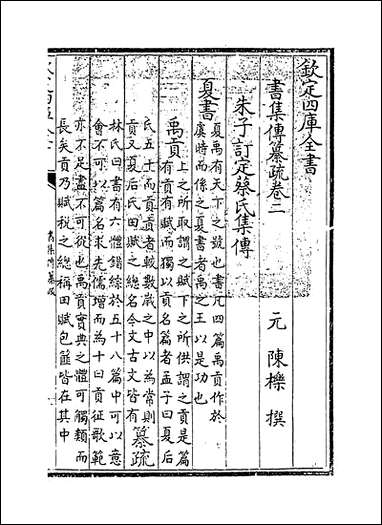 欽定四庫全書
書集傳纂疏卷二
元 陳櫟 撰
朱子訂定蔡氏集傳
夏書
夏禹有天下之號也書凡四篇禹貢作於
虞時而係之夏書者禹之王以是功也
禹貢
上之所取謂之賦下之所供謂之貢是篇
有貢有賦而獨以貢名篇者孟子曰夏后
氏五十而貢貢者較數歲之中以為常則
貢又夏后氏田賦之總名今文古文皆有
纂疏
林氏曰書有六體錯綜於五十八篇中可以意
會不可以篇名求先儒增而為十曰貢征歌範
亦不足盡不可從也禹貢實典之體可觸類而
長矣貢乃賦稅之總稱田賦包篚皆在其中